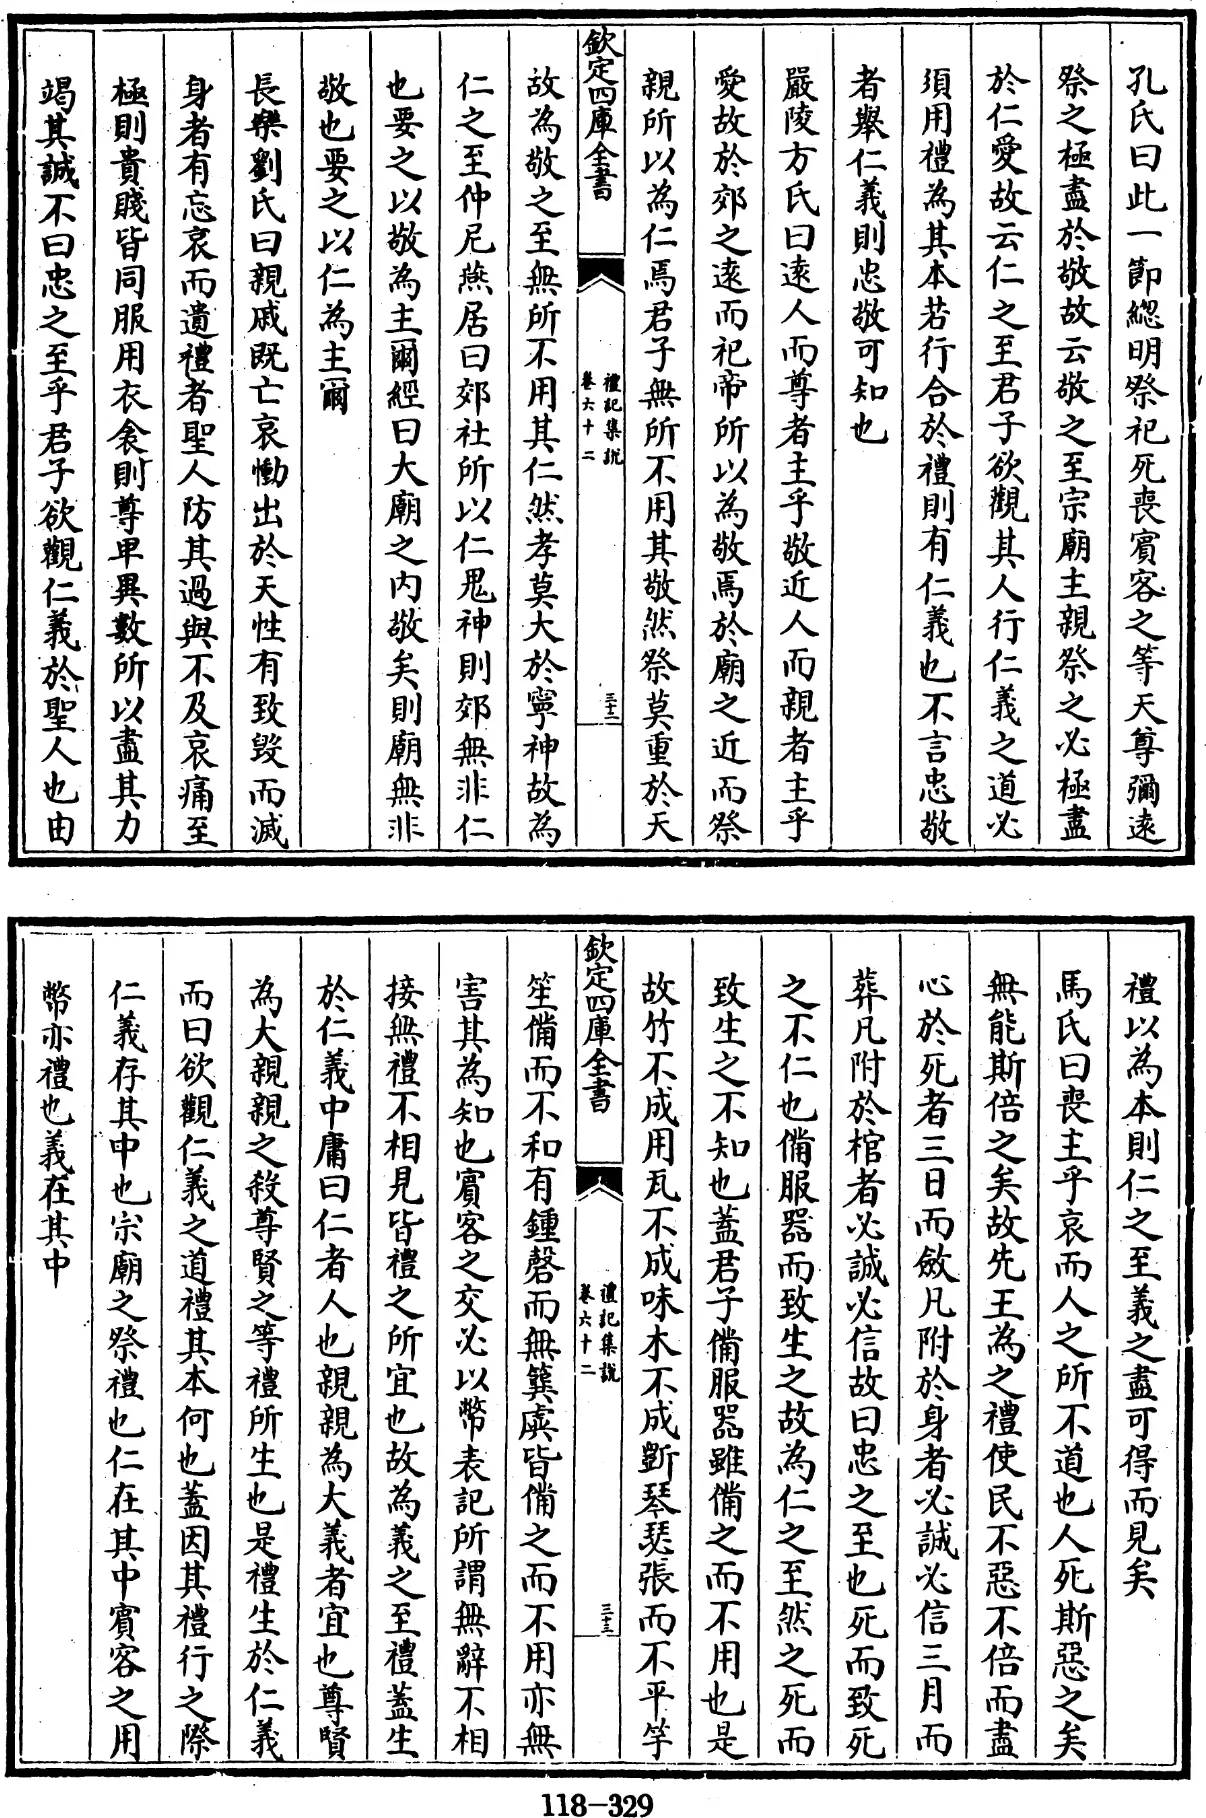 孔氏曰此一節緫明祭祀死喪賓客之等天尊彌遠
祭之極盡於敬故云敬之至宗廟主親祭之必極盡
於仁愛故云仁之至君子欲觀其人行仁義之道必
須用禮為其本若行合於禮則有仁義也不言忠敬
者舉仁義則忠敬可知也
嚴陵方氏曰遠人而尊者主乎敬近人而親者主乎
愛故於郊之遠而祀帝所以為敬焉於廟之近而祭
親所以為仁焉君子無所不用其敬然祭莫重於天
欽定四庫全書
禮記集說
卷六十二
三十二
故為敬之至無所不用其仁然孝莫大於寧神故為
仁之至仲尼燕居曰郊社所以仁鬼神則郊無非仁
也要之以敬為主爾經曰大廟之內敬矣則廟無非
敬也要之以仁為主爾
長樂劉氏曰親戚既亡哀慟出於天性有致毀而滅
身者有忘哀而遺禮者聖人防其過與不及哀痛至
極則貴賤皆同服用衣衾則尊卑異數所以盡其力
竭其誠不曰忠之至乎君子欲觀仁義於聖人也由
禮以為本則仁之至義之盡可得而見矣
馬氏曰喪主乎哀而人之所不道也人死斯惡之矣
無能斯倍之矣故先王為之禮使民不惡不倍而盡
心於死者三日而斂凡附於身者必誠必信三月而
葬凡附於棺者必誠必信故曰忠之至也死而致死
之不仁也備服器而致生之故為仁之至然之死而
致生之不知也蓋君子備服器雖備之而不用也是
故竹不成用瓦不成味木不成斲琴瑟張而不平竽
欽定四庫全書
禮記集說
卷六十二
三十三
笙備而不和有鍾磬而無簨虡皆備之而不用亦無
害其為知也賓客之交必以幣表記所謂無辭不相
接無禮不相見皆禮之所宜也故為義之至禮蓋生
於仁義中庸曰仁者人也親親為大義者宜也尊賢
為大親親之殺尊賢之等禮所生也是禮生於仁義
而曰欲觀仁義之道禮其本何也蓋因其禮行之際
仁義存其中也宗廟之祭禮也仁在其中賓客之用
幣亦禮也義在其中
118-329